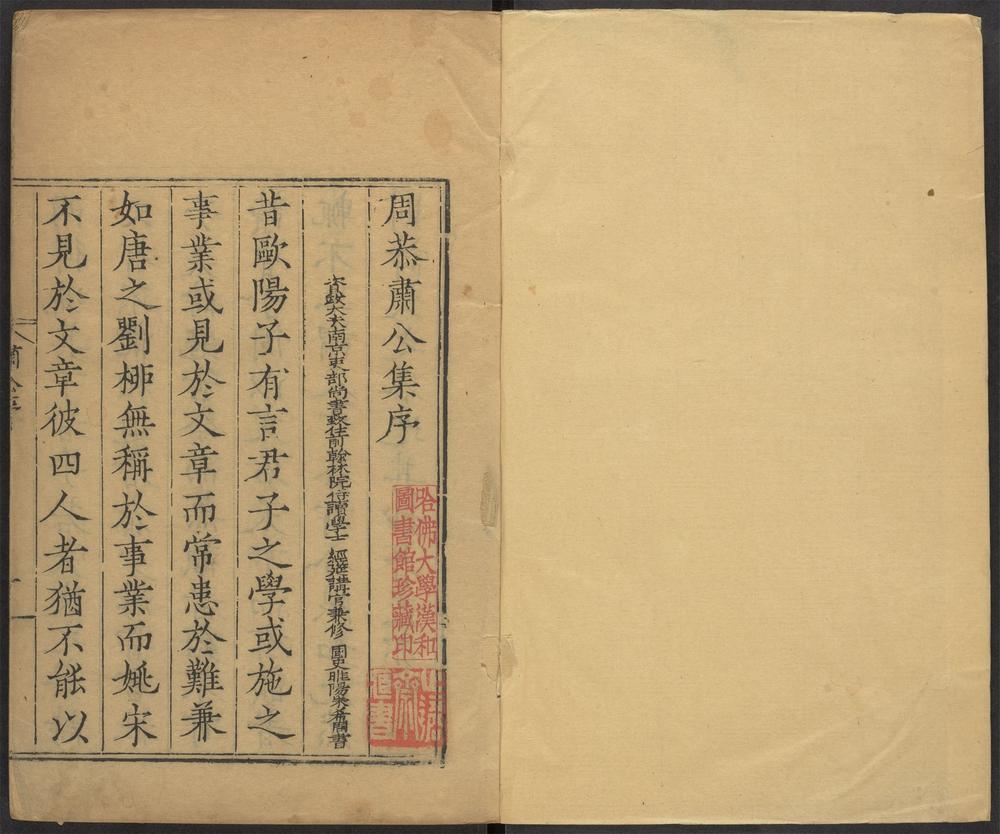 周恭肅公集序
資政大夫南京吏部尚書致仕前翰林院侍讀學士 經筵講官兼修 國史眭陽朱希周書
昔歐陽子有言君子之學或施之
事業或見於文章而常患於難兼
如唐之劉栁無稱於事業而姚宋
不見於文章彼四人者猶不能以
哈佛大學漢和
圖書館珍藏印